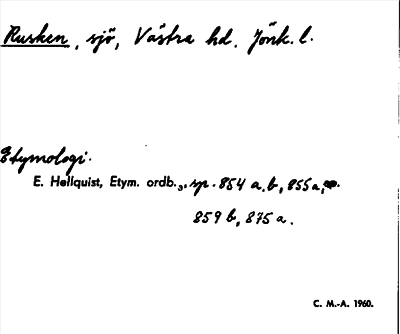 Rusken, sjö, Västra hd. Jönk. l.
Etymologi.
E. Hellquist, Etym. ordb.₃, sp. 854 a, b, 855 a,
859 b, 875 a.
C. M.-A. 1960.